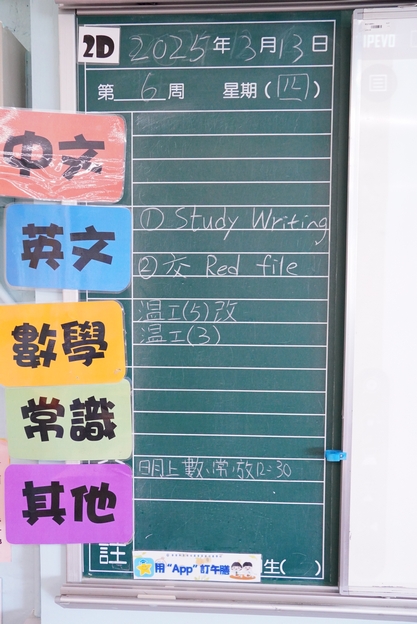 2D 2025年3月13日
第6周 星期(四)
中文
英文 ① Study Writing
② 交 Red file
數學 温工(5)改
温工(3)
常識
其他 明上數、常,放12:30
註 用“App”訂午膳 生( )
IPEVO